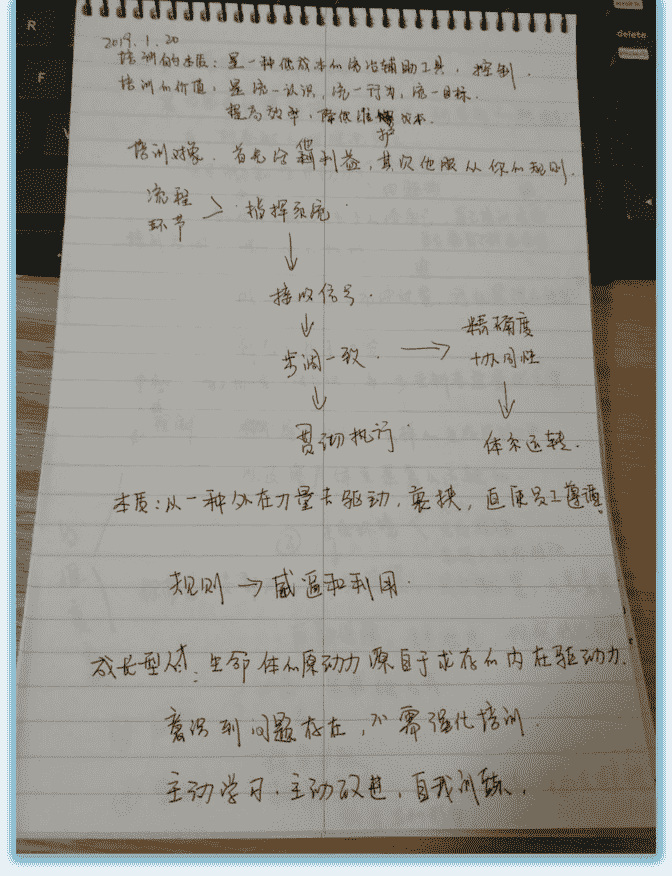 R
F
delete
2019.1.20
培训的本质：是一种低成本的统治辅助工具，控制.
培训的价值，是统一认识，统一行为，统一目标.
提高效率，降低维护成本.
培训对象.首先它 利益，其次他服从你的规则.
流程
环节 > 指挥系统
↓
接收信号.
↓
步调一致. → 精确度
协同性
↓ ↓
贯彻执行. 体系运转.
本质：从一种外在力量去驱动，裹挟，迫使员工遵循
规则 → 威逼和利用.
成长型人才：生命体的原动力源自于求存的内在驱动力.
意识到问题存在，不需强化培训.
主动学习.主动改进，自我训练.